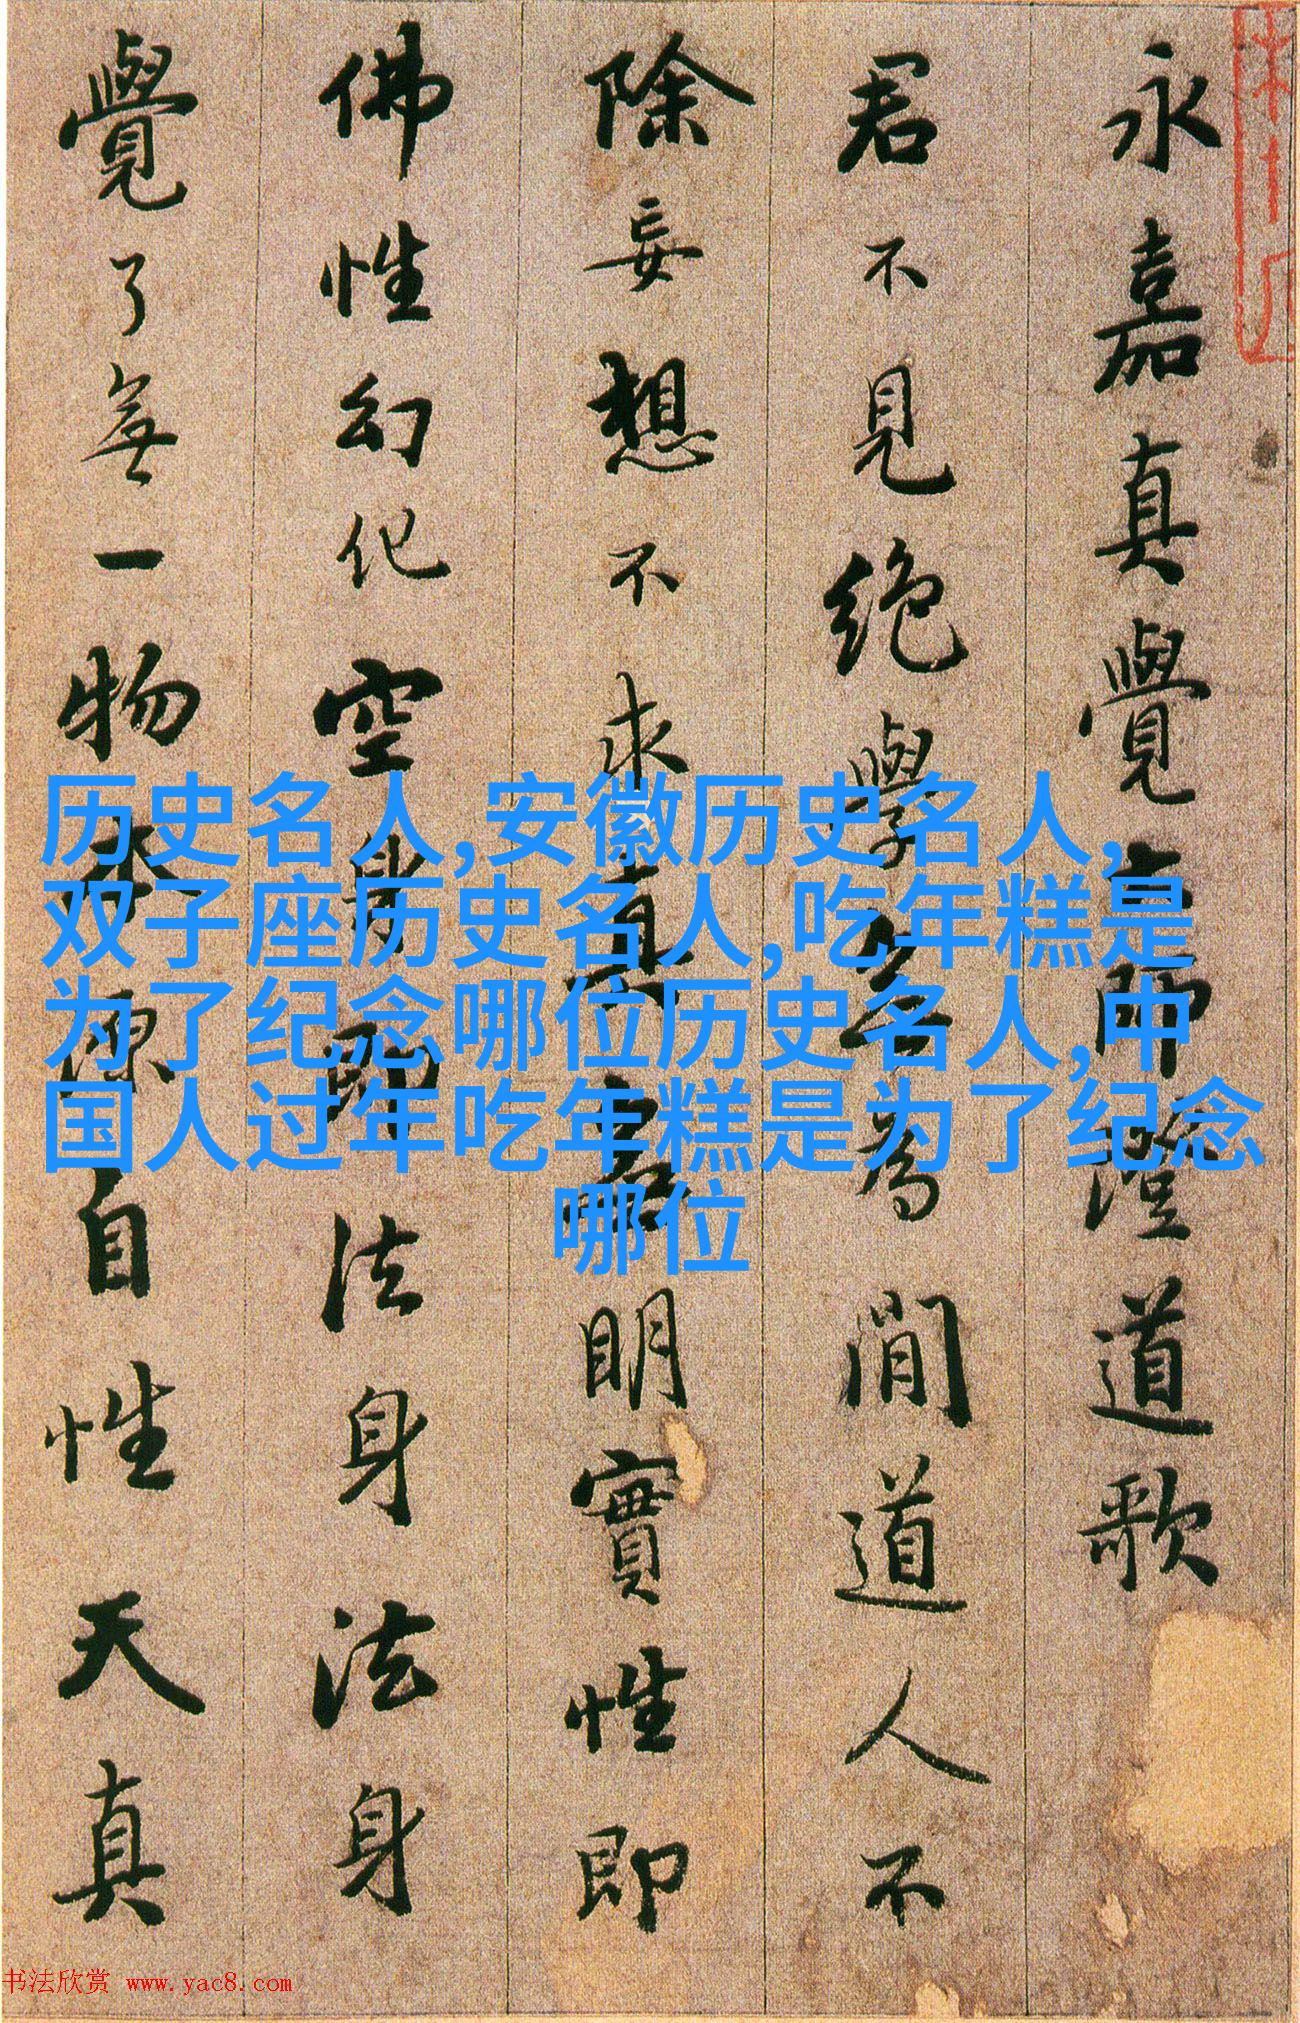 永嘉真覺大師證道歌
君不見絕學無為閒道人不
除妄想不求真無明實性即
佛性幻化空身即法身法身
覺了無一物本源自性天真
历史名人,安徽历史名人,
双子座历史名人,吃年糕是
为了纪念哪位历史名人,中
国人过年吃年糕是为了纪念
哪位
书法欣赏 www.yac8.com